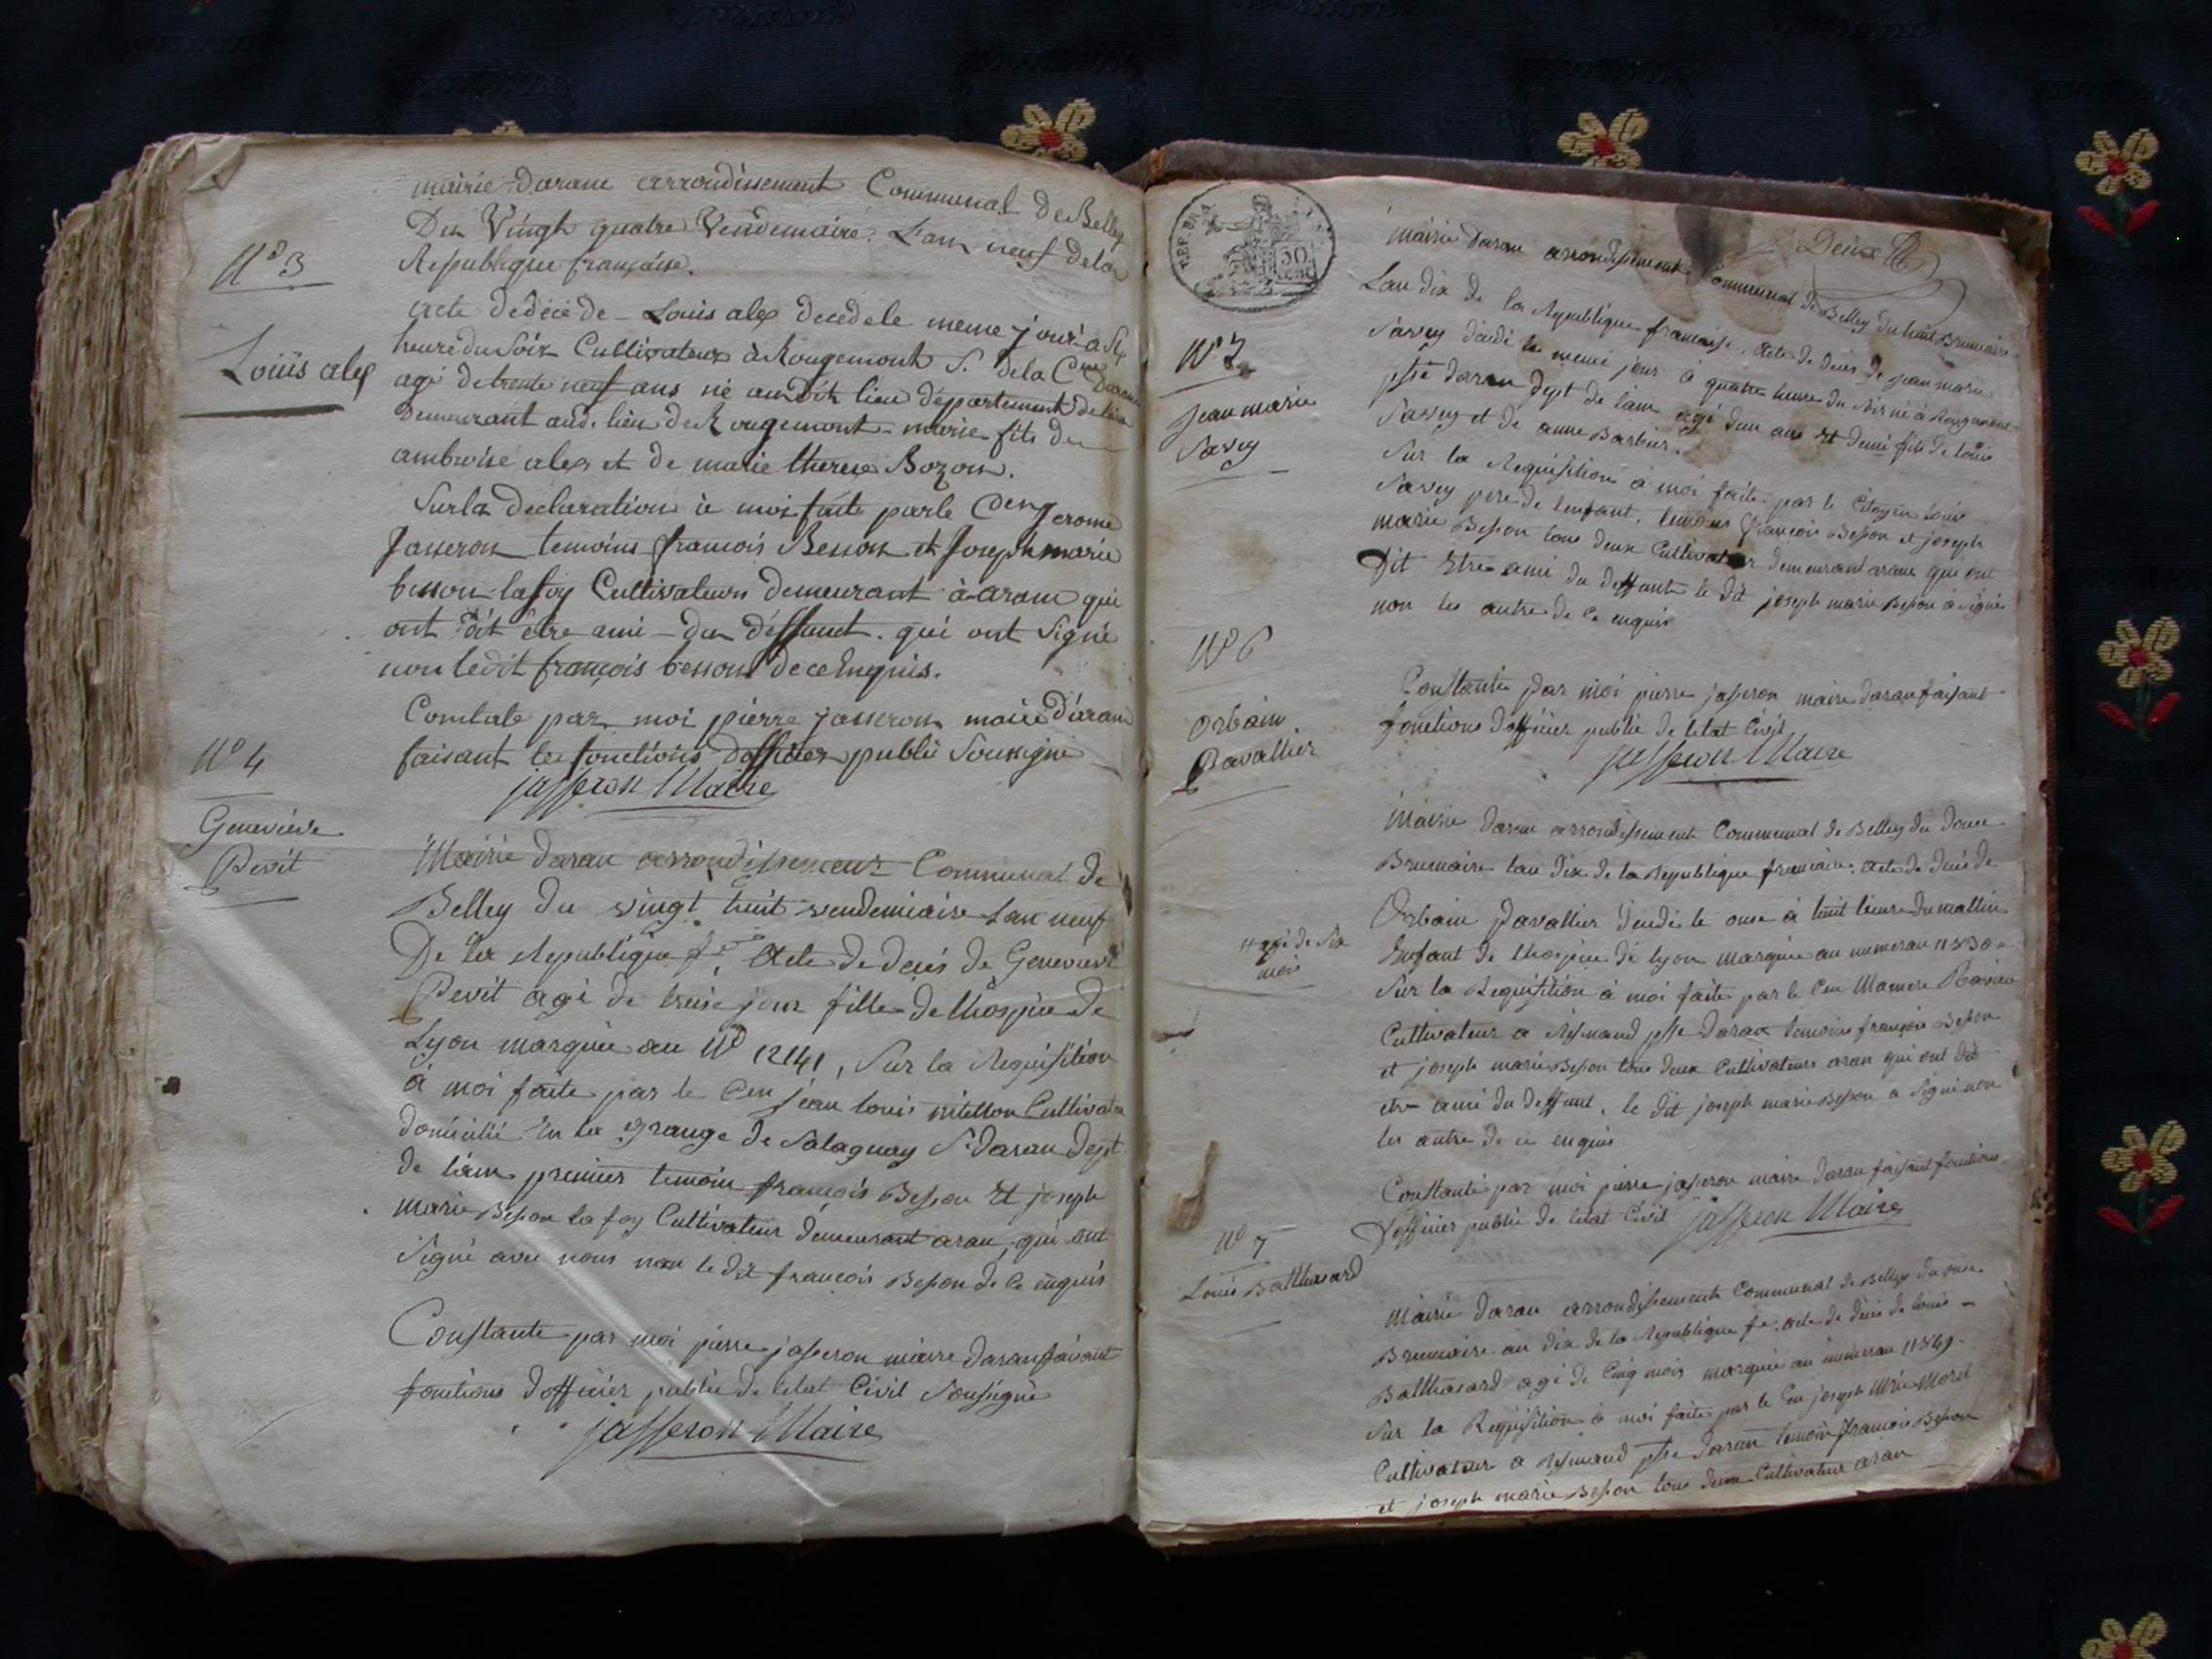 mairie daranc arrondissement Communal de Belley
Du Vingt quatre Vendemiaire. L'an neuf dela
Republique française.
N° 3
Louis alex
acte dedécéde Louis alex decedele meme jour a Six
heure du Soir Cultivateur à Rougemont S. dela Cne Daranc
agé detrente neuf ans né au dit lieu département de lain
Demeurant aud. lieu de Rougemont marie fils de
ambroise alex et de marie therese Bozon.
Surla declaration à moi faite parle Cen Jerome
Jasseron temoins francois Besson et Joseph marie
besson lafoy Cultivateurs demeurant à aranc qui
ont dit etre ami du deffunct. qui ont Signé
non ledit françois besson de ce Enquis.
Constate par moi pierre jasseron maire d'aranc
faisant les fonctions dofficier public Soussigné
jasseron Maire
N° 4
Genevieve
Pevit
Mairie daranc arrondissement Communal de
Belley du vingt huit vendemiaire Lan neuf
De la Republique fse Acte de deces de Genevieve
Pevit agé de treise jour fille de lhospice de
Lyon marquée au N° 12141, Sur la Requisition
à moi faite par le Cen jean louis mitellon Cultivateur
domicilié En la grange de Salagnay S. daran dept.
de lain premier temoin françois Besson Et joseph
marie Besson La foy Cultivateur demeurant aran, qui ont
Signé avec nous non le dit françois Besson de Ce enquis
Constanté par moi pierre jasseron maire daran faisant
fonctions dofficier public de letat Civil Soussigné
jasseron Maire
REP. FRA.
50
Deux
mairie daran arrondissement Communal de Belley du huit Brumaire
Lan dix de la Republique française, Acte de deces de jean marie
N°
jean marie
Savey
Savey décédé le meme jour à quatre heure du Soir né à Rougemont
psse daran dept de lain agé dun ans Et demi fils de louis
Savey et de anne Barbier.
Sur la Requisition à moi faite par le Citoyen louis
Savey pere de lenfant, temoins françois Besson et joseph
marie Besson tous deux Cultivateur demeurant aranc qui ont
Dit Etre ami du deffunt le dit joseph marie Besson à Signé
non les autre de Ce enquis
Constanté par moi pierre jasseron maire daran faisant
fonctions dofficier public de letat Civil
jasseron Maire
N° 6
Orbain
Pavallier
Mairie daran arrondissement Communal de Belley du douse
Brumaire lan dix de la Republique française. Acte de deces de
Orbain Pavallier décédé le onse à huit heure du mattin
agé de Six
mois
Enfant de lhospice de lyon marquée au numeran 11330
Sur la Requisition à moi faite par le Cen
Cultivateur a Resinand psse daran temoins françois Besson
et joseph marie Besson tous deux Cultivateurs aran qui ont dit
etre ami du deffunt, le dit joseph marie Besson a Signé non
les autre de ce enquis
Constanté par moi pierre jasseron maire daran faisant fonctions
Dofficier public de letat Civil jasseron Maire
N° 7
Louis Balthasard
Mairie daran arrondissement Communal de Belley du onse
Brumaire an dix de la Republique fse. Acte de deces de louis
Balthasard agé de Cinq mois marquée au numeran 11549
Sur la Requisition à moi faite par le Cen joseph Mrie Morel
Cultivateur a Resinand psse daran temoin françois Besson
et joseph marie Besson tous deux Cultivateur aran